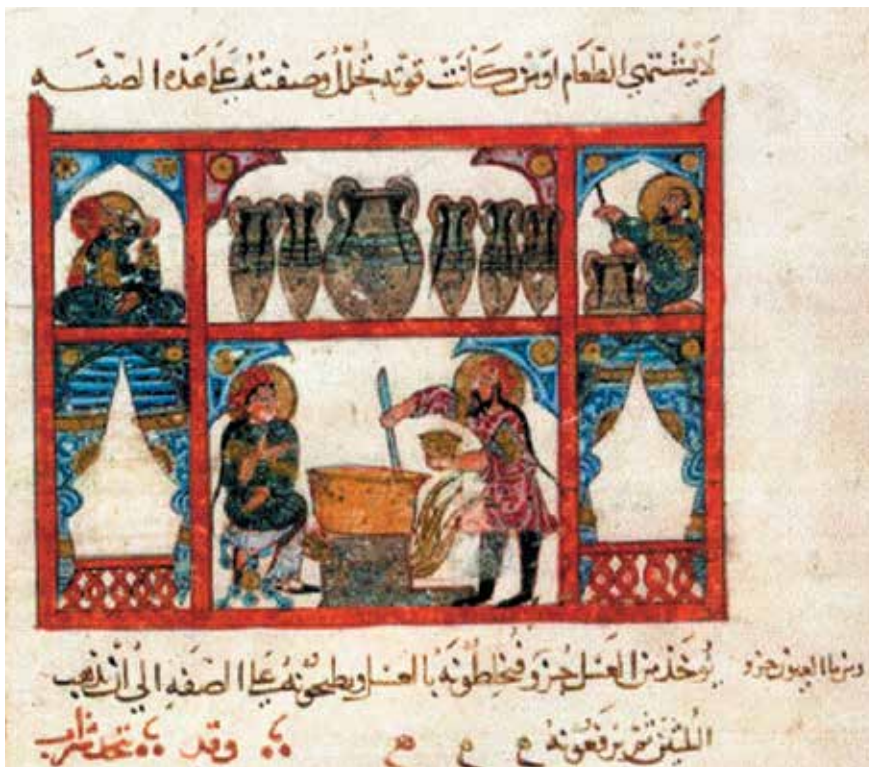 لا يشتهي الطعام او من كانت قوته وصفته على هذه الصفه
يوخذ من العسل جزو فيخلطونه بالعسل ويطبخونه على الصفه الي أن يذهب
ومن ما العيون جزو
الثلثين ثم يرفعونه وقد يتخذ شراب